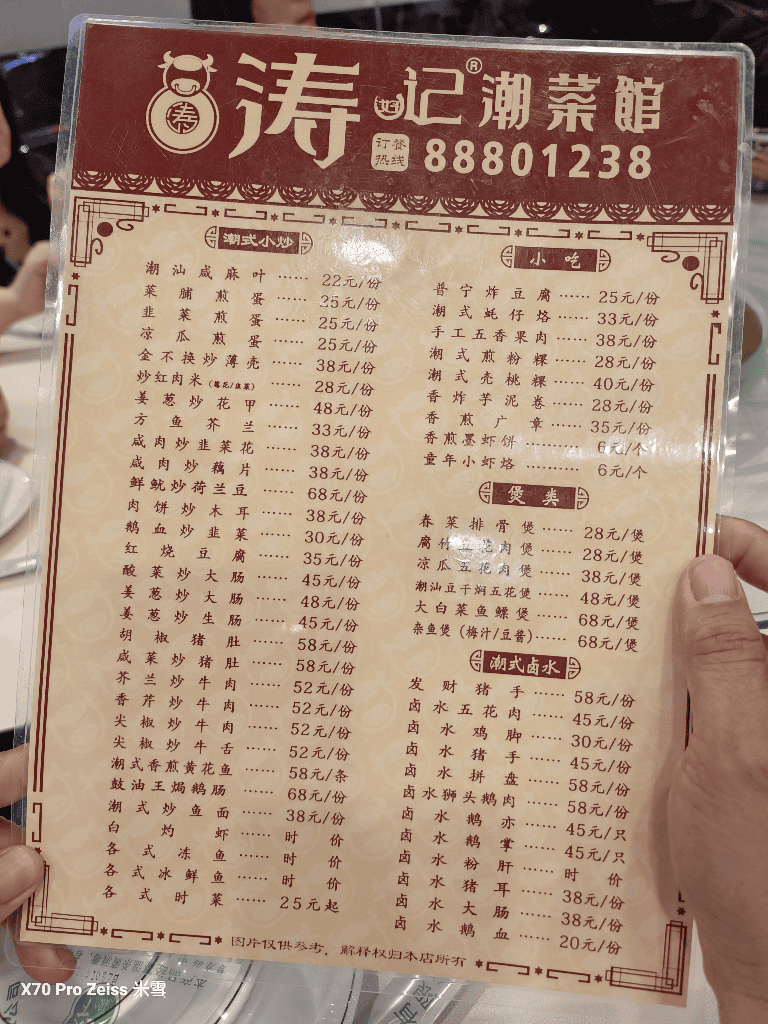 涛 记® 潮菜館
订餐热线 88801238
潮式小炒
潮汕咸麻叶 …… 22元/份
菜脯煎蛋 …… 25元/份
韭菜煎蛋 …… 25元/份
凉瓜煎蛋 …… 25元/份
金不换炒薄壳 …… 38元/份
炒红肉米(葱花/韭菜) …… 28元/份
姜葱炒花甲 …… 48元/份
方鱼芥兰 …… 33元/份
咸肉炒韭菜花 …… 38元/份
咸肉炒藕片 …… 38元/份
鲜鱿炒荷兰豆 …… 68元/份
肉饼炒木耳 …… 38元/份
鹅血炒韭菜 …… 30元/份
红烧豆腐 …… 35元/份
酸菜炒大肠 …… 45元/份
姜葱炒大肠 …… 48元/份
姜葱炒生肠 …… 45元/份
胡椒猪肚 …… 58元/份
咸菜炒猪肚 …… 58元/份
芥兰炒牛肉 …… 52元/份
香芹炒牛肉 …… 52元/份
尖椒炒牛肉 …… 52元/份
尖椒炒牛舌 …… 52元/份
潮式香煎黄花鱼 …… 58元/条
鼓油王焗鹅肠 …… 68元/份
潮式炒鱼面 …… 38元/份
白灼虾 …… 时价
各式冻鱼 …… 时价
各式冰鲜鱼 …… 时价
各式时菜 …… 25元起
小吃
普宁炸豆腐 …… 25元/份
潮式蚝仔烙 …… 33元/份
手工五香果肉 …… 38元/份
潮式煎粉粿 …… 28元/份
潮式壳桃粿 …… 40元/份
香炸芋泥卷 …… 28元/份
香煎广章 …… 35元/份
香煎墨虾饼 …… 6元/个
童年小虾烙 …… 6元/个
煲类
春菜排骨煲 …… 28元/煲
腐竹五花肉煲 …… 28元/煲
凉瓜五花肉煲 …… 38元/煲
潮汕豆干焖五花煲 …… 48元/煲
大白菜鱼鳔煲 …… 68元/煲
杂鱼煲(梅汁/豆酱) …… 68元/煲
潮式卤水
发财猪手 …… 58元/份
卤水五花肉 …… 45元/份
卤水鸡脚 …… 30元/份
卤水猪手 …… 45元/份
卤水拼盘 …… 58元/份
卤水狮头鹅肉 …… 58元/份
卤水鹅亦 …… 45元/只
卤水鹅掌 …… 45元/只
卤水粉肝 …… 时价
卤水猪耳 …… 38元/份
卤水大肠 …… 38元/份
卤水鹅血 …… 20元/份
图片仅供参考，解释权归本店所有
X70 Pro Zeiss 米雪